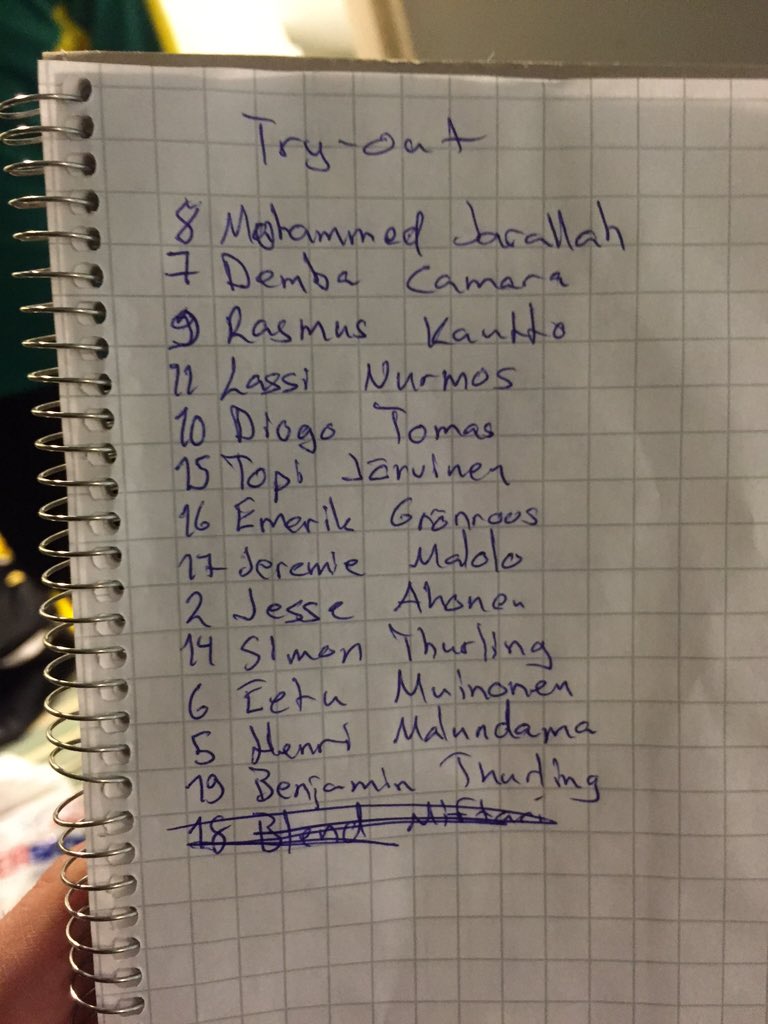 Try-out
8 Mohammed Jarallah
7 Demba Camara
9 Rasmus Kautto
11 Lassi Nurmos
10 Diogo Tomas
15 Topi Järvinen
16 Emerik Grönroos
17 Jeremie Malolo
2 Jesse Ahonen
14 Simon Thurling
6 Eetu Muinonen
5 Henri Malundama
19 Benjamin Thurling
18 Blend Miftari